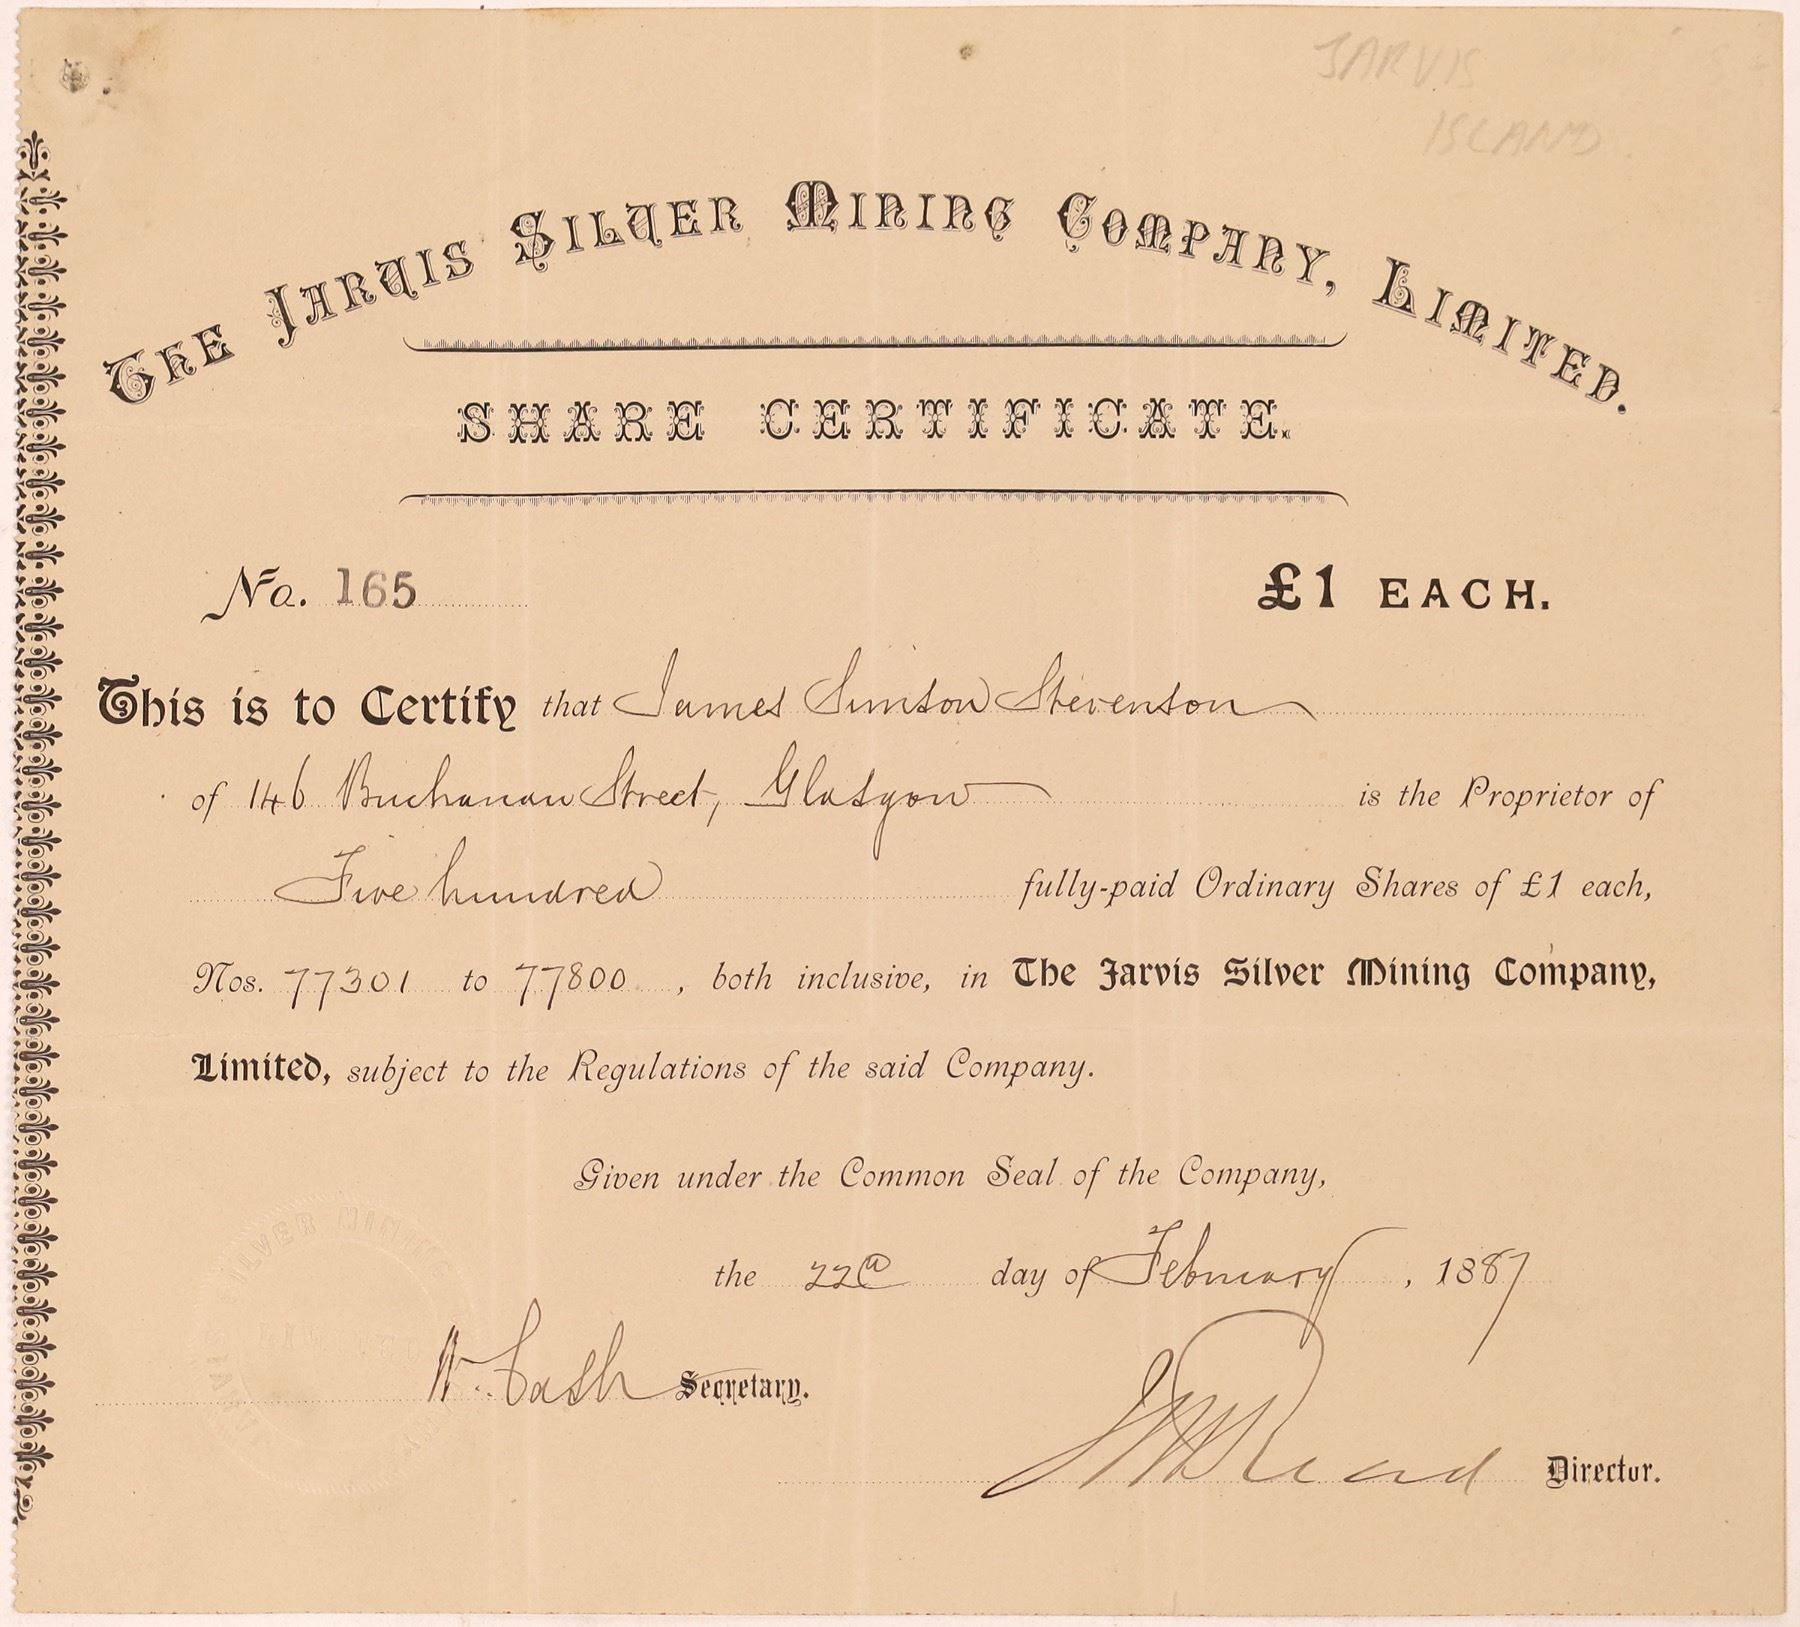 JARVIS
ISLAND
THE JARVIS SILVER MINING COMPANY, LIMITED.
SHARE CERTIFICATE.
No. 165 £1 EACH.
This is to Certify that James Simson Stevenson
of 146 Buchanan Street, Glasgow is the Proprietor of
Five hundred fully-paid Ordinary Shares of £1 each,
Nos. 77301 to 77800, both inclusive, in The Jarvis Silver Mining Company,
Limited, subject to the Regulations of the said Company.
Given under the Common Seal of the Company,
the 22nd day of February, 1887
SILVER MINING
W. Cash Secretary.
Read Director.